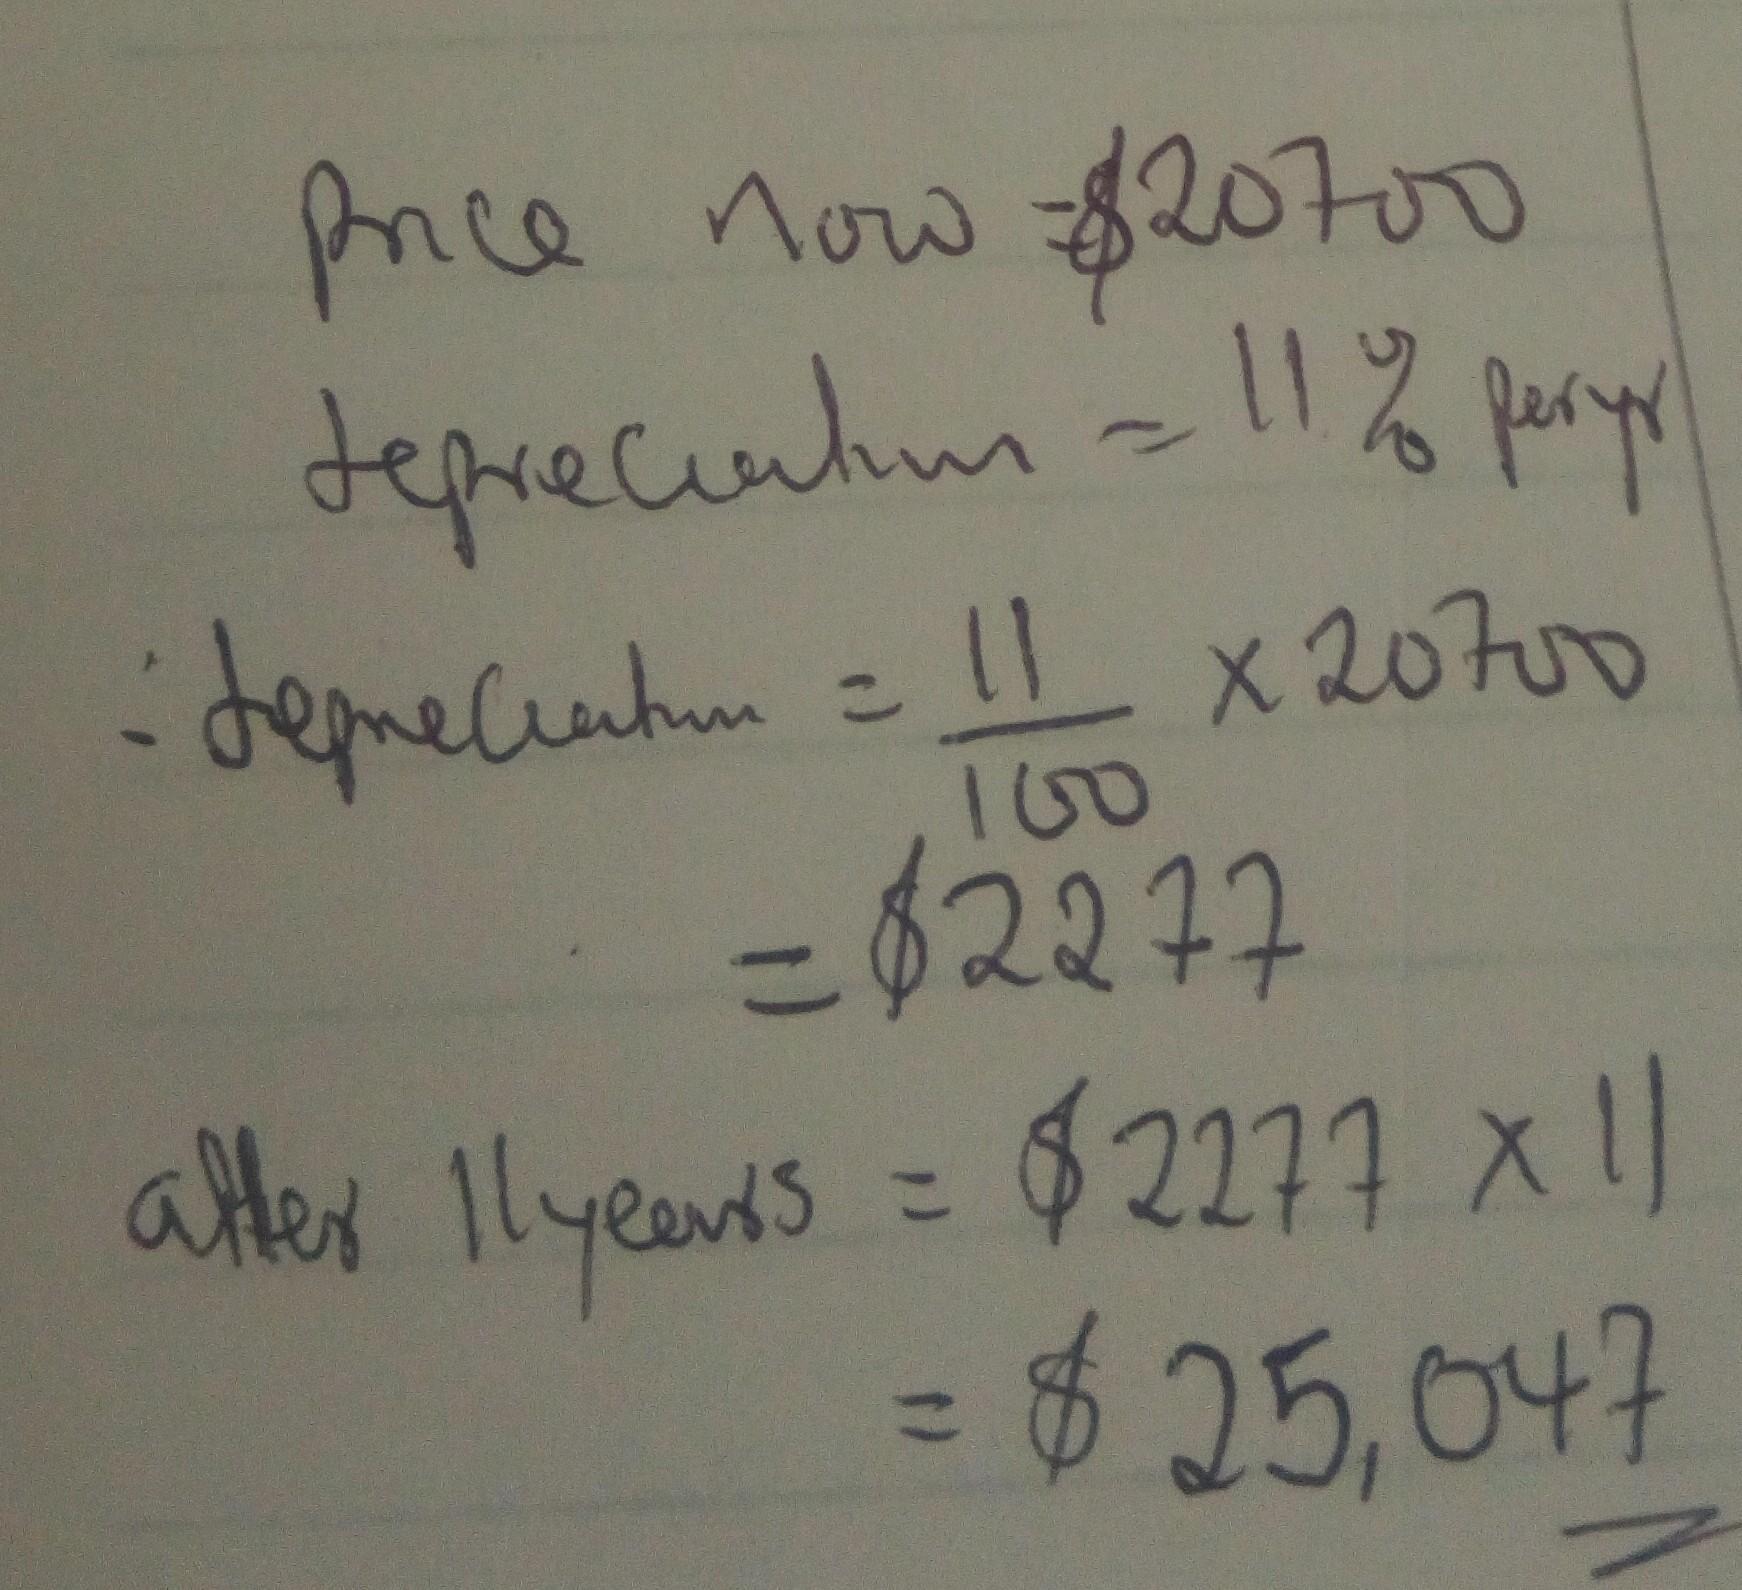 price now = $20700
depreciation = 11% per yr
∴ depreciation = 11/100 × 20700
= $2277
after 11 years = $2277 × 11
= $25,047